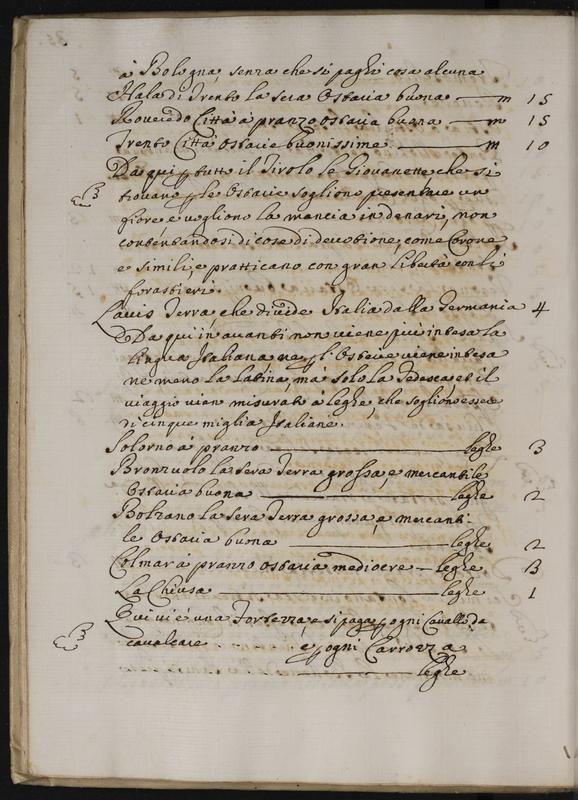 à Bologna, senza che si paghi cosa alcuna
Hala di Trento la sera Ostaria buona m 15
Roveredo Città à pranzo Ostaria buona m 15
Trento Città Ostarie buonissime m 10
Da qui p tutto il Tirolo le Giovanette che si
trovano p le Ostarie sogliono presentare un
fiore e vogliono la mancia in denari, non
contentandosi di cose di devotione, come Corone,
e simili, e pratticano con gran libertà con li
forastieri.
Lavis Terra, che divide Italia dalla Germania 4
Da qui in avanti non viene più intesa la
lingua Italiana ne p l'Osterie viene intesa
ne meno la latina, mà solo la Tedesca, et il
viaggio vien misurato à leghe, che sogliono essere
di cinque miglia Italiane.
Solorno à pranzo leghe 3
Bronzuolo la sera Terra grossa, e mercantile
Ostaria buona leghe 2
Bolzano la sera Terra grossa, e mercanti-
le Ostaria buona leghe 2
Colmar à pranzo Ostaria mediocre leghe 3
La Chiusa leghe 1
Qui vi è una Fortezza, e si paga p ogni Cavallo da
cavalcare . . . . . . . è p ogni Carrozza
. . . . . leghe